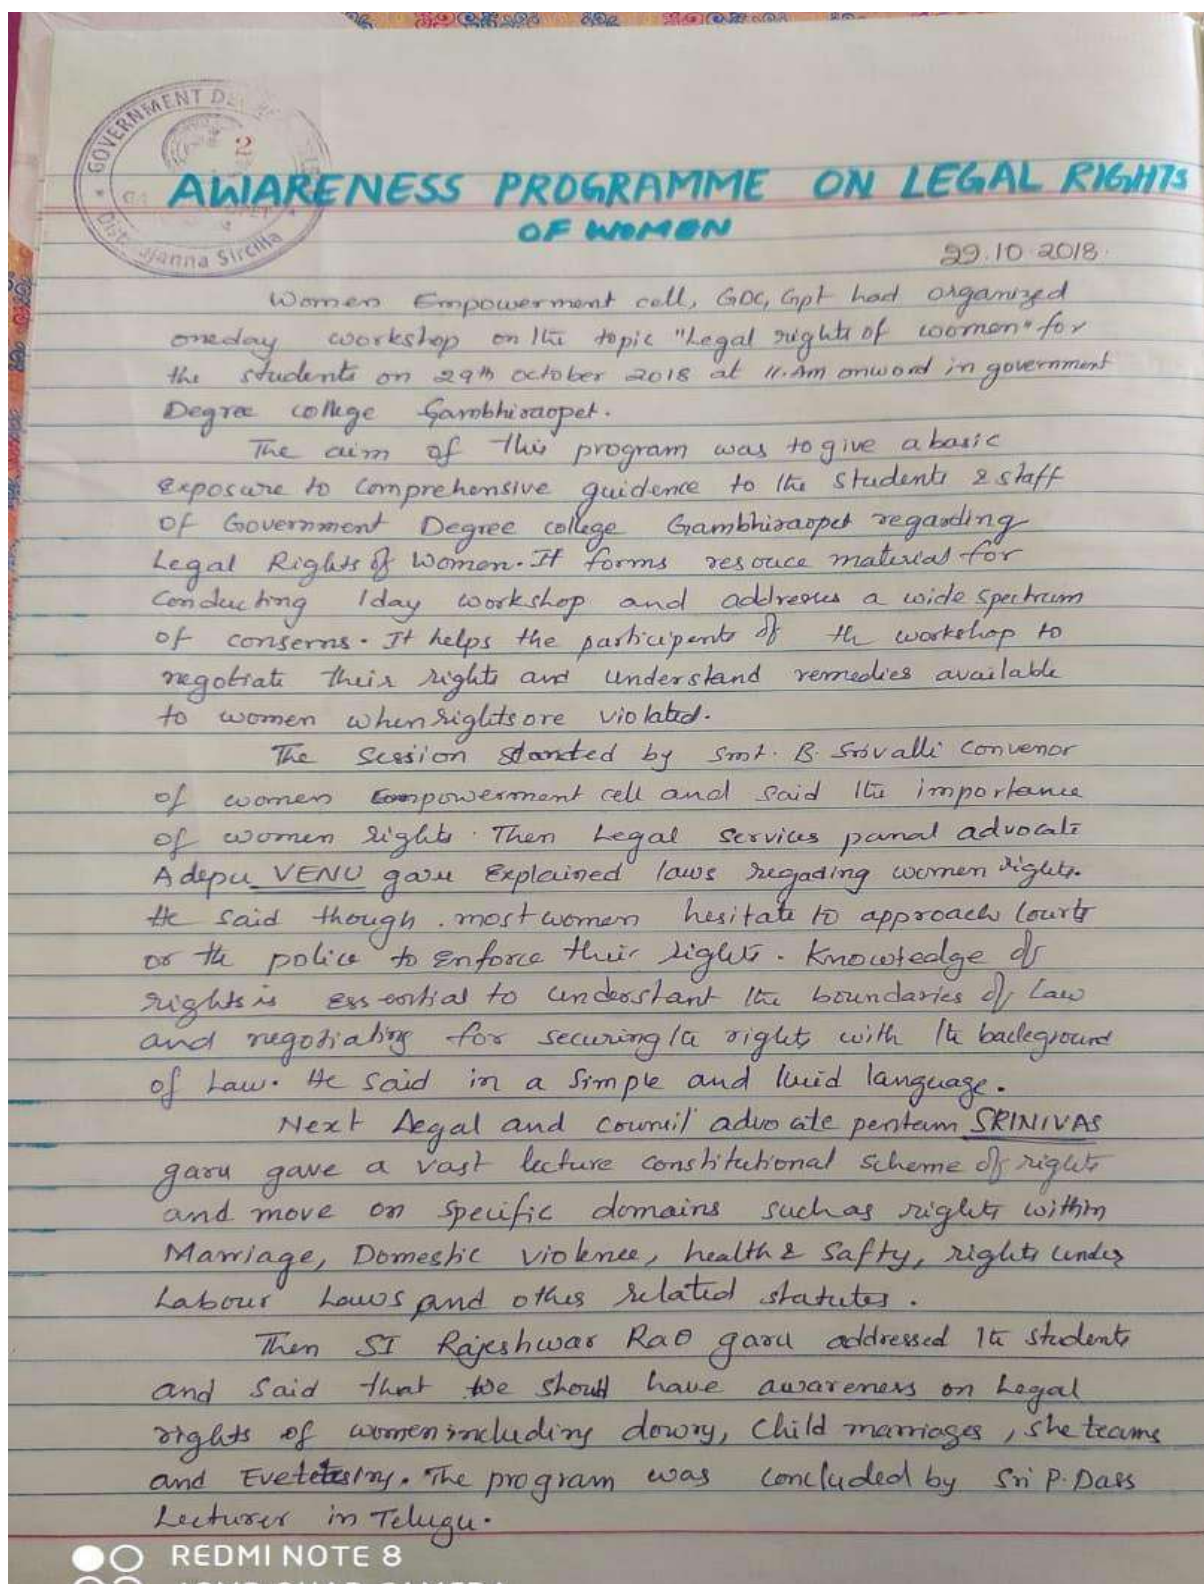 GOVERNMENT DE
2
Dist. Rajanna Sircilla
AWARENESS PROGRAMME ON LEGAL RIGHTS
OF WOMEN
29.10.2018.
Women Empowerment cell, GDC, Gpt had organized
oneday workshop on the topic "Legal rights of women" for
the students on 29th October 2018 at 11.Am onword in government
Degree college Gambhiraopet.
The aim of this program was to give a basic
Exposure to comprehensive guidence to the students & staff
of Government Degree college Gambhiraopet regarding
Legal Rights of Women. It forms resouce material for
conducting 1day workshop and addresses a wide spectrum
of conserns. It helps the participents of th workshop to
negotiate their rights and understand remedies available
to women when rights are violated.
The Session standed by Smt. B. Srivalli Convenor
of women Empowerment cell and said the importance
of women rights. Then Legal Services panal advocate
Adepu VENU garu Explained laws regading women rights.
He said though. most women hesitate to approach courts
or th police to Enforce their rights. Knowledge of
rights is Essential to understant the boundaries of Law
and negotiating for securing the rights with the background
of Law. He said in a Simple and luid language.
Next Legal and council advocate pentam SRINIVAS
garu gave a vast lecture constitutional scheme of rights
and move on specific domains such as rights within
Marriage, Domestic violence, health & Safty, rights under
Labour Laws and other related statutes.
Then SI Rajeshwar Rao garu addressed the students
and said that we should have awareness on Legal
rights of women including dowry, Child marriages, she teams
and Eveteesing. The program was concluded by Sri P. Dass
Lecturer in Telugu.
REDMI NOTE 8